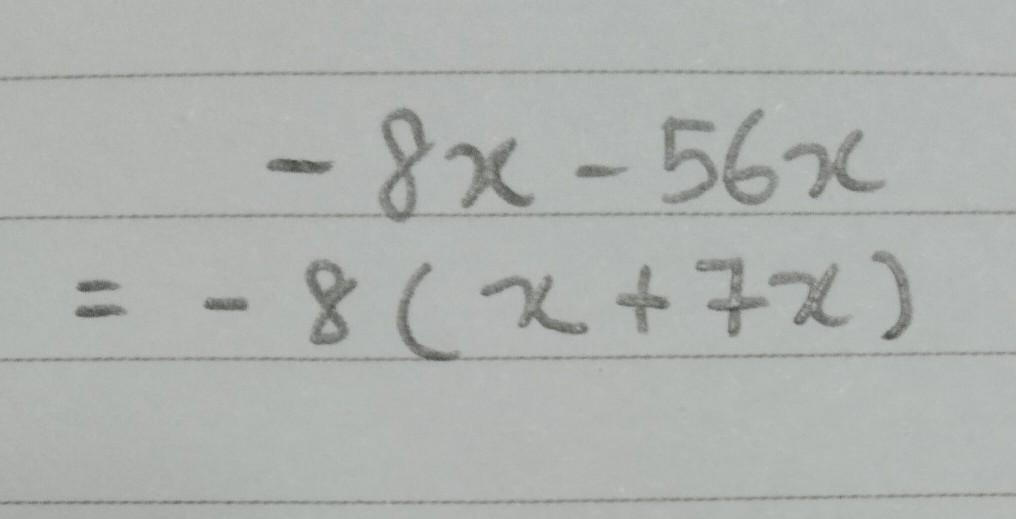 - 8x - 56x
= - 8 ( x + 7x )